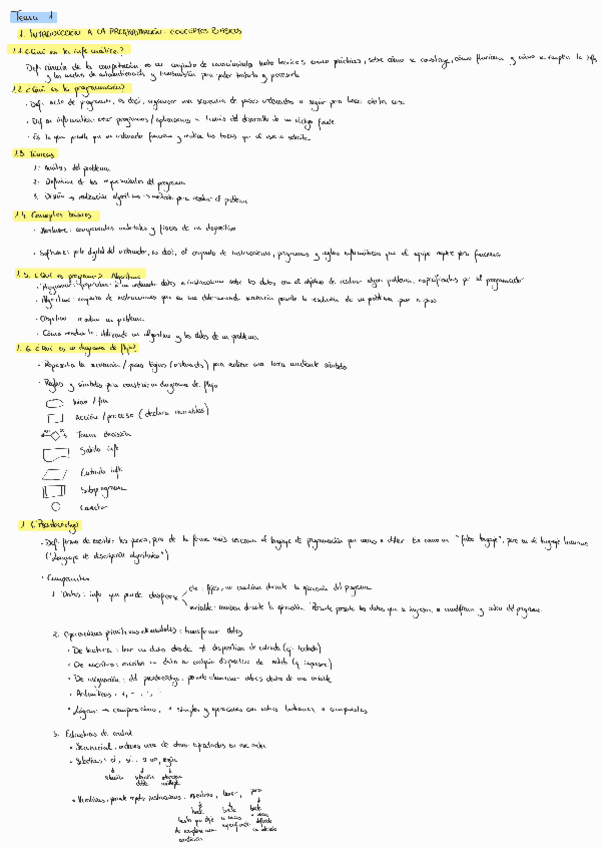 Tema 1
1. INTRODUCCION A LA PROGRAMACIÓN: CONCEPTOS BASICOS
1.1 ¿Qué es la informática?
Def: ciencia de la computación: es un conjunto de conocimientos tanto teóricos como prácticos, sobre cómo se construye, cómo funciona y cómo se emplea la
y los medios de automatización y transmisión para poder tratarla y procesarla
1.2 ¿Qué es la programación?
· Def: acto de programar, es decir, organizar una secuencia de pasos ordenados a seguir para hacer cierta cosa
· Def en informática: crear programas/aplicaciones a través del desarrollo de un código fuente
· Es lo que permite que un ordenador funcione y realice las tareas que el usuario solicita
1.3 Técnicas
1: Análisis del problema
2: Definición de los requerimientos del programa
3: Diseño y realización algoritmo → método para resolver el problema
1.4. Conceptos básicos
· Hardware: componentes materiales y físicos de un dispositivo
· Software: parte digital del ordenador, es decir, el conjunto de instrucciones, programas y reglas informáticas que el equipo requiere para funcionar
1.5. ¿Qué es programa? Algoritmo
· Programa: a un ordenador datos e instrucciones sobre los datos con el objetivo de resolver algún problema, especificados por el programador
· Algoritmo: conjunto de instrucciones que en una determinada secuencia permite la resolución de un problema paso a paso
· Objetivo: resolver un problema
· Cómo resolverlo: utilizando un algoritmo y los datos de un problema
1.6 ¿Qué es un diagrama de flujo?
· Representa la secuencia/pasos lógicos (ordenados) para realizar una tarea mediante símbolos
· Reglas y símbolos para construir un diagrama de flujo
Inicio / fin
Acción / proceso (declara variables)
Toma decisión
Salida info
Entrada info
Subprograma
Conector
1. Pseudocódigo
· Def: forma de escribir los pasos, pero de la forma más cercana al lenguaje de programación que vamos a utilizar. Es como un "falso lenguaje", pero en el lenguaje humano
("Lenguaje de descripción algorítmico")
· Componentes
1. Datos: info que puede
cte: fijos, no cambian durante la ejecución del programa
variable: cambian durante la ejecución. los datos que se ingresan, o modifican y salen del programa
2. Operaciones primitivas elementales: transformar datos
· De lectura: leer un datos desde ≠ dispositivos de entrada (ej: teclado)
· De escritura: escribir un dato en cualquier dispositivo de salida (ej impresora)
· De asignación: del pseudocódigo, permite almacenar valores dentro de una variable
· Aritméticas: +, -,
· Lógicas: → comparaciones, simples y operaciones con valores booleanos o compuestos
3. Estructuras de control
· Secuencial, ordenes una detrás
· Selectivas: si, si... si no, según
selección
selección doble
selección múltiple
· Iterativas, permite repetir instrucciones. mientras, hacer, para
bucle
bucle
bucle